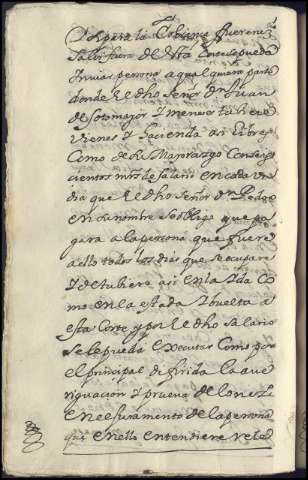 y si para la Cobranza fuere ne
salir fuera de esta Corte se pueda
Inviar persona a qualquiera parte
donde el dho Señor Dn Juan
de sotomayor y meneses tubiere
Vienes y hacienda asi libres
Como de su Mayorazgo Con seis
cientos mrs de salario en cada un
dia que el dho Señor Dn Pedro
en su nombre se obligo que pa
gara a la persona que fuere
a ello todos los dias que se ocupare
y detubiere asi en la Ida Co
mo en la estada y buelta a
esta Corte y por el dho salario
se le pueda executar Como por
el principal diferida la ave
riguacion y prueva de lo nes
en el juramento de la persona
que en ello entendiere rele